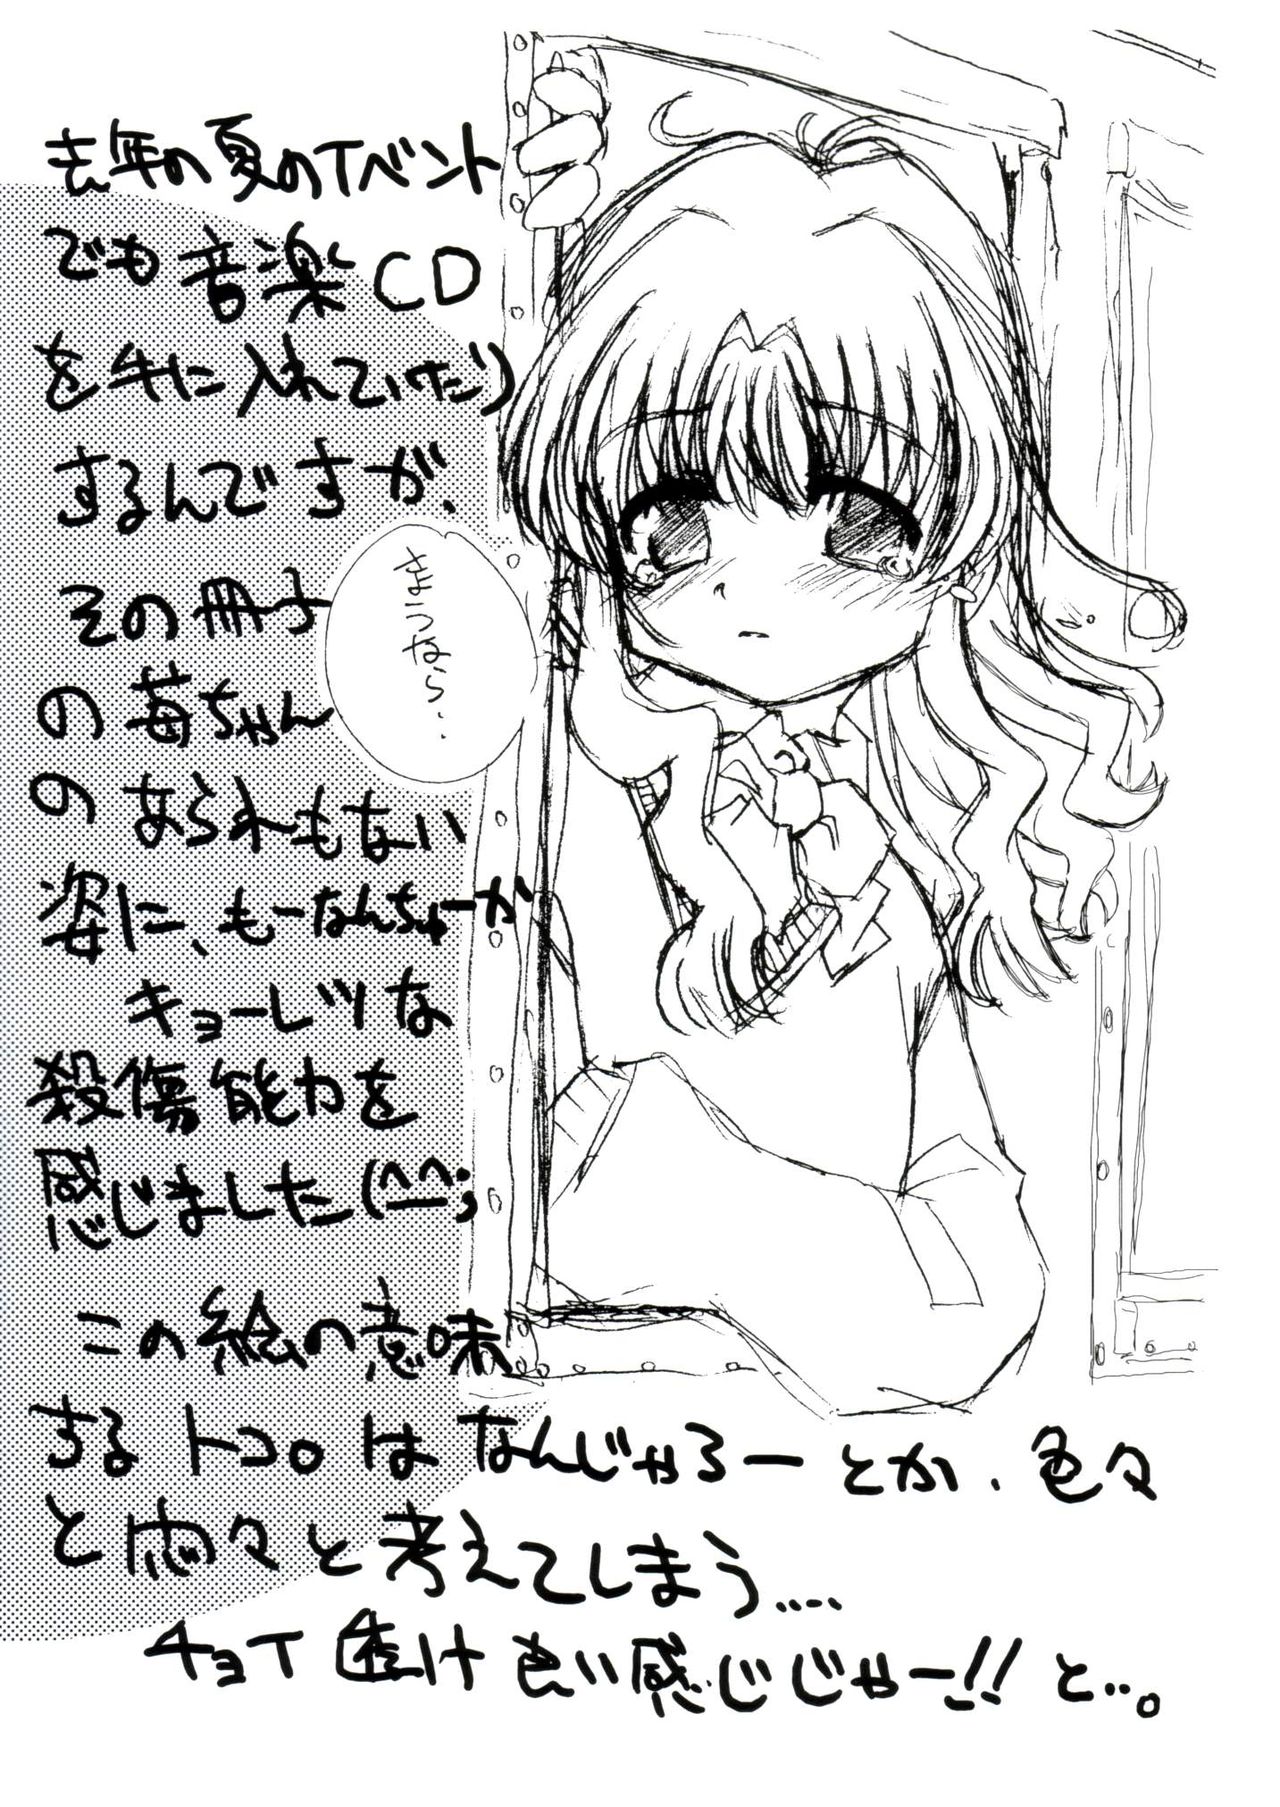 去年の夏のイベント
でも音楽CD
を手に入れていたり
するんですが、
その冊子
の苺ちゃん
のあられもない
姿に、もーなんちゅーか
キョーレツな
殺傷能力を
感じました(^^;
この絵の意味
するトコロはなんじゃろーとか、色々
と悶々と考えてしまう‥‥
チョイ透け良い感じじゃー!!と‥。
さうなら‥